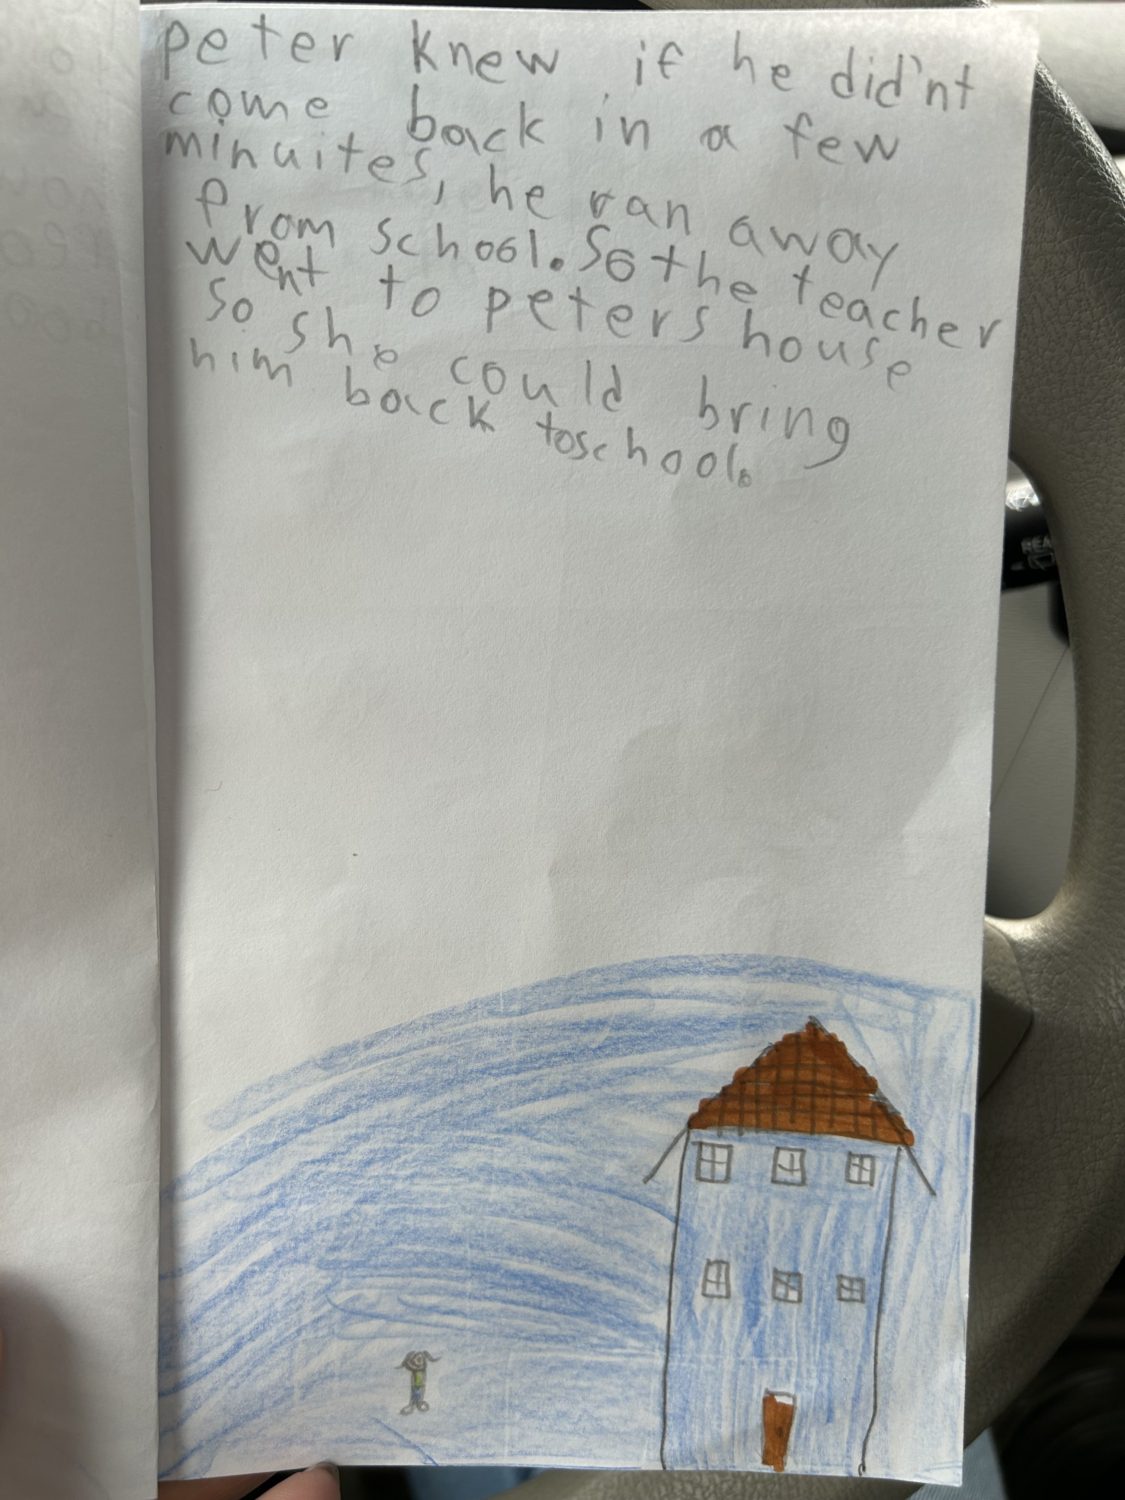 peter knew if he did'nt
come back in a few
minuites, he ran away
from school. So the teacher
went to peters house
so she could bring
him back toschool.
REA